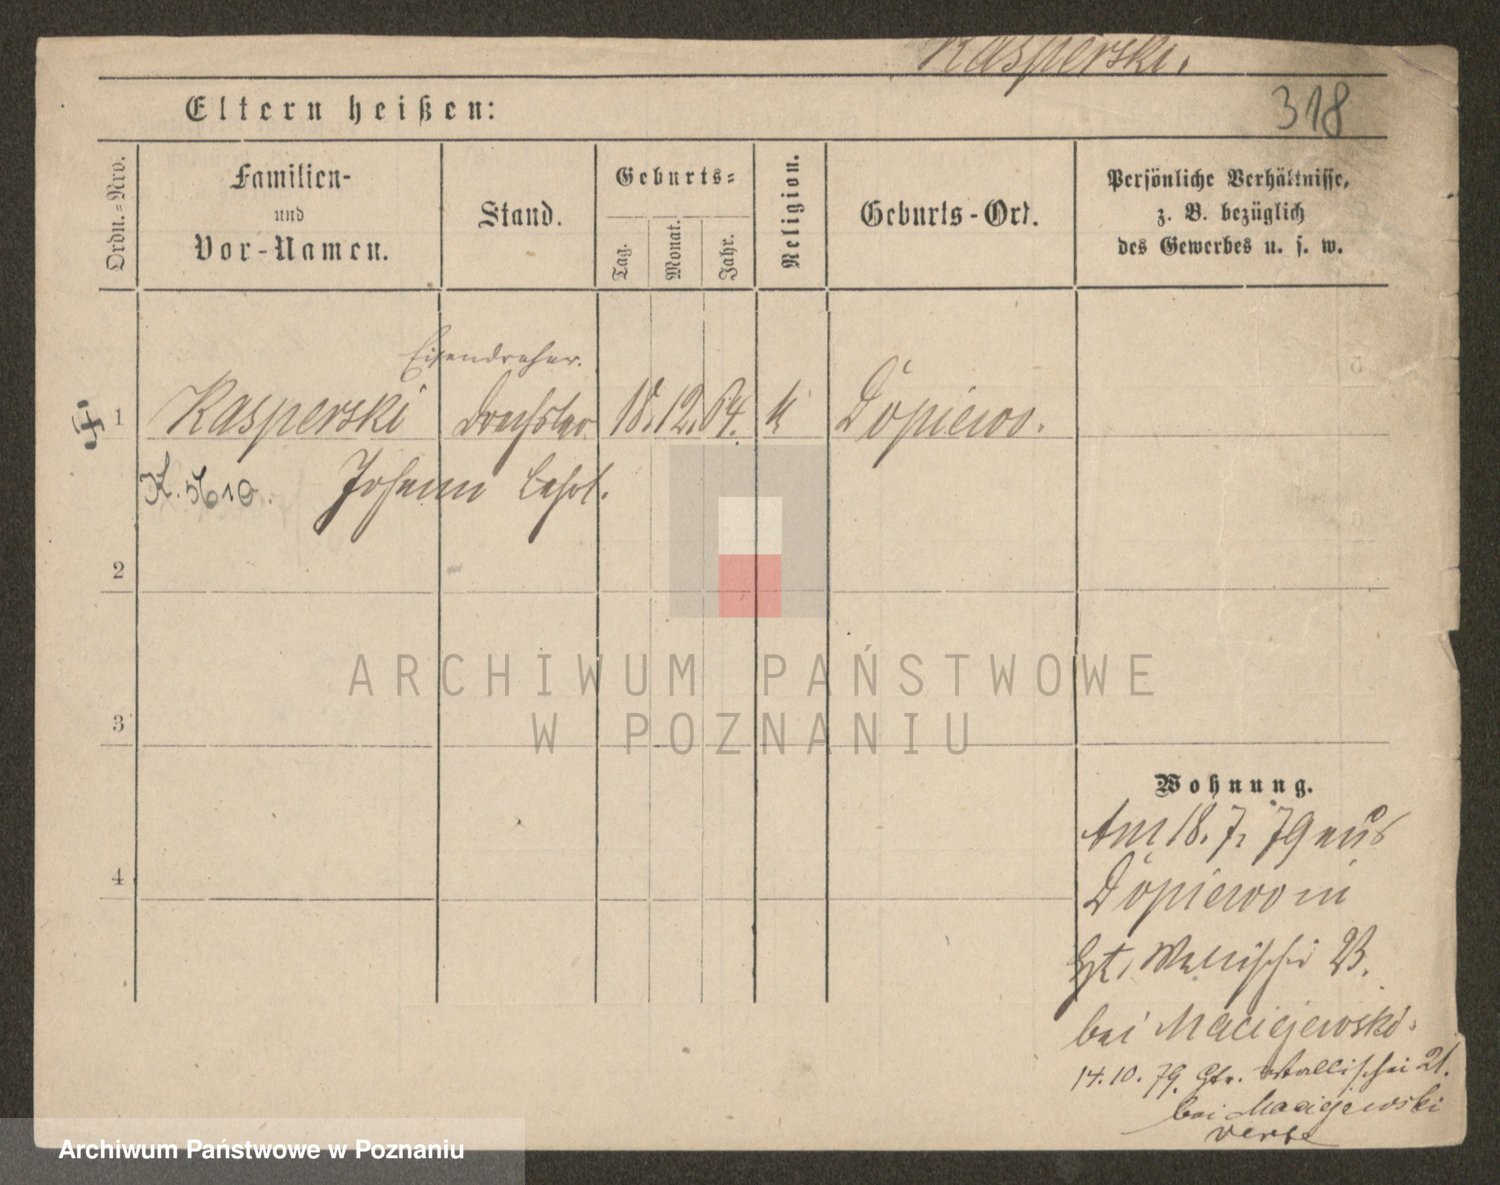 Kasperski.
318
Eltern heißen:
Ordn.=Nro.
Familien-
und
Vor-Namen.
Stand.
Geburts=
Tag.
Monat.
Jahr.
Religion.
Geburts-Ort.
Persönliche Verhältnisse,
z. B. bezüglich
des Gewerbes u. s. w.
Eisendreher.
1 Kasperski Drechsler 18. 12. 64. k Dopiewo.
Johann Lehrl.
2
3
4
ARCHIWUM PAŃSTWOWE
W POZNANIU
Wohnung.
Am 18. 7. 79 aus
Dopiewo in
Wallischei 23.
bei Maciejewski.
14. 10. 79. Wallischei 21.
bei Maciejewski
verte
Archiwum Państwowe w Poznaniu